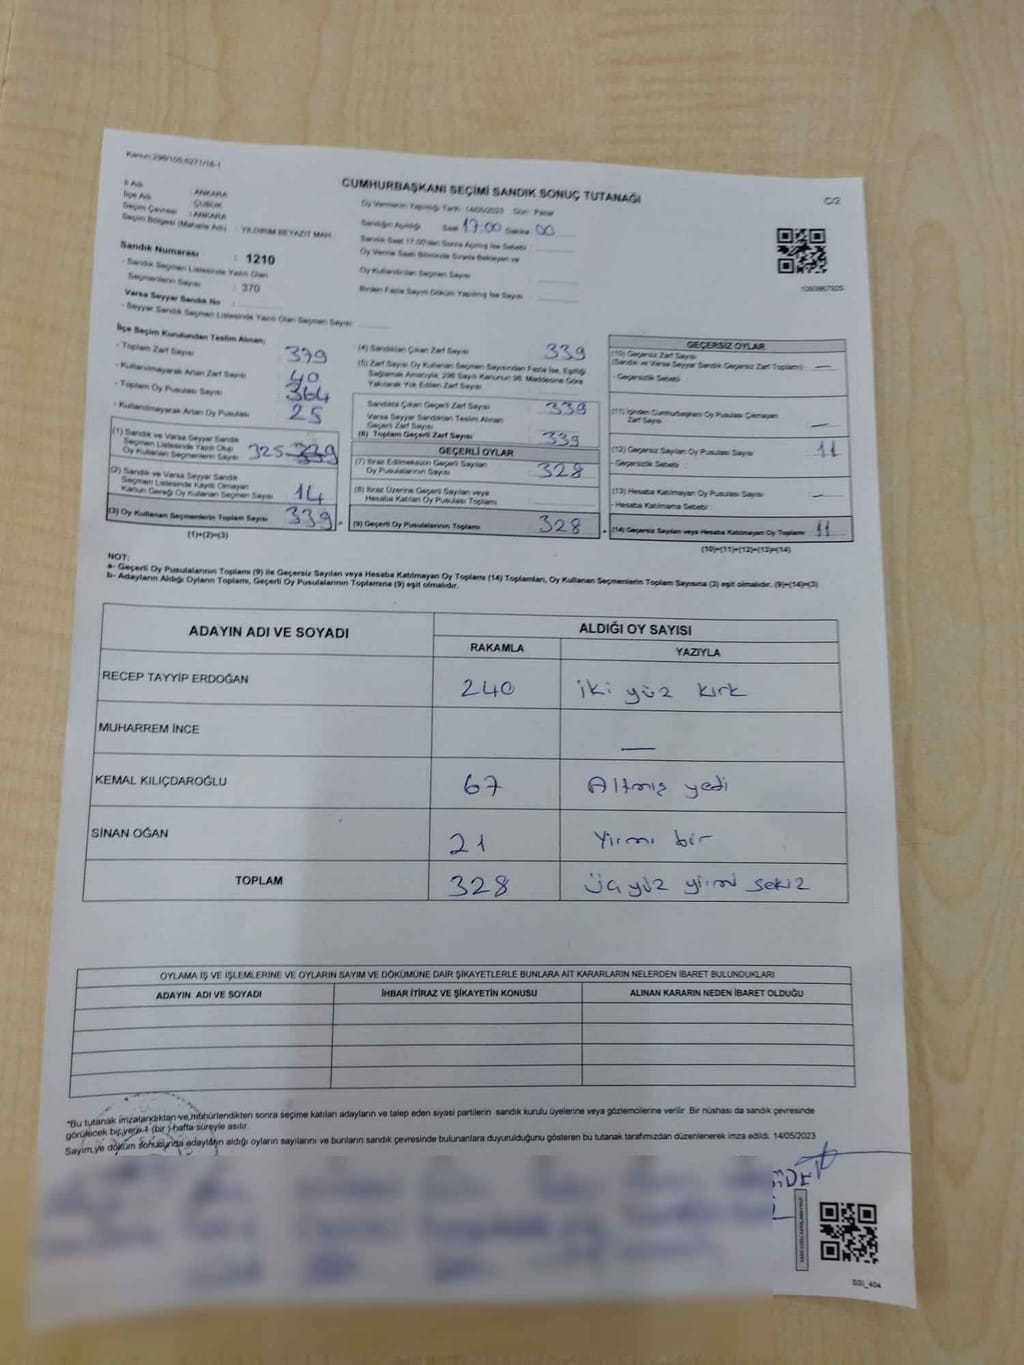 Kanun:298/105,6271/18-1
CUMHURBAŞKANI SEÇİMİ SANDIK SONUÇ TUTANAĞI
C/2
İl Adı : ANKARA
İlçe Adı : ÇUBUK
Seçim Çevresi : ANKARA
Seçim Bölgesi (Mahalle Adı) : YILDIRIM BEYAZIT MAH.
Oy Vermenin Yapıldığı Tarih: 14/05/2023 Gün : Pazar
Sandığın Açıldığı Saat 17:00 Dakika 00
Sandık Saat 17.00'den Sonra Açılmış İse Sebebi :
Oy Verme Saati Bitiminde Sırada Bekleyen ve
Oy Kullandırılan Seçmen Sayısı
Birden Fazla Sayım Döküm Yapılmış İse Sayısı :
Sandık Numarası : 1210
- Sandık Seçmen Listesinde Yazılı Olan
Seçmenlerin Sayısı : 370
Varsa Seyyar Sandık No :
- Seyyar Sandık Seçmen Listesinde Yazılı Olan Seçmen Sayısı:
İlçe Seçim Kurulundan Teslim Alınan;
- Toplam Zarf Sayısı 379
- Kullanılmayarak Artan Zarf Sayısı 40
- Toplam Oy Pusulası Sayısı 364
- Kullanılmayarak Artan Oy Pusulası 25
(1) Sandık ve Varsa Seyyar Sandık
Seçmen Listesinde Yazılı Olup
Oy Kullanan Seçmenlerin Sayısı 325 339
(2) Sandık ve Varsa Seyyar Sandık
Seçmen Listesinde Kayıtlı Olmayan
Kanun Gereği Oy Kullanan Seçmen Sayısı 14
(3) Oy Kullanan Seçmenlerin Toplam Sayısı 339 =
(1)+(2)=(3)
(4) Sandıktan Çıkan Zarf Sayısı 339
(5) Zarf Sayısı Oy Kullanan Seçmen Sayısından Fazla İse, Eşitliği
Sağlamak Amacıyla, 298 Sayılı Kanunun 98. Maddesine Göre
Yakılarak Yok Edilen Zarf Sayısı
Sandıkta Çıkan Geçerli Zarf Sayısı 339
Varsa Seyyar Sandıktan Teslim Alınan
Geçerli Zarf Sayısı
(6) Toplam Geçerli Zarf Sayısı 339
GEÇERLİ OYLAR
(7) İtiraz Edilmeksizin Geçerli Sayılan
Oy Pusulalarının Sayısı 328
(8) İtiraz Üzerine Geçerli Sayılan veya
Hesaba Katılan Oy Pusulası Toplamı
(9) Geçerli Oy Pusulalarının Toplamı 328 +
GEÇERSİZ OYLAR
(10) Geçersiz Zarf Sayısı
(Sandık ve Varsa Seyyar Sandık Geçersiz Zarf Toplamı) —
- Geçersizlik Sebebi :
(11) İçinden Cumhurbaşkanı Oy Pusulası Çıkmayan
Zarf Sayısı —
(12) Geçersiz Sayılan Oy Pusulası Sayısı 11
- Geçersizlik Sebebi :
(13) Hesaba Katılmayan Oy Pusulası Sayısı —
- Hesaba Katılmama Sebebi
(14) Geçersiz Sayılan veya Hesaba Katılmayan Oy Toplamı 11
(10)+(11)+(12)+(13)=(14)
NOT:
a- Geçerli Oy Pusulalarının Toplamı (9) ile Geçersiz Sayılan veya Hesaba Katılmayan Oy Toplamı (14) Toplamları, Oy Kullanan Seçmenlerin Toplam Sayısına (3) eşit olmalıdır. (9)+(14)=(3)
b- Adayların Aldığı Oyların Toplamı, Geçerli Oy Pusulalarının Toplamına (9) eşit olmalıdır.
ADAYIN ADI VE SOYADI
ALDIĞI OY SAYISI
RAKAMLA YAZIYLA
RECEP TAYYİP ERDOĞAN 240 iki yüz kırk
MUHARREM İNCE —
KEMAL KILIÇDAROĞLU 67 Altmış yedi
SİNAN OĞAN 21 Yirmi bir
TOPLAM 328 üç yüz yirmi sekiz
OYLAMA İŞ VE İŞLEMLERİNE VE OYLARIN SAYIM VE DÖKÜMÜNE DAİR ŞİKAYETLERLE BUNLARA AİT KARARLARIN NELERDEN İBARET BULUNDUKLARI
ADAYIN ADI VE SOYADI İHBAR İTİRAZ VE ŞİKAYETİN KONUSU ALINAN KARARIN NEDEN İBARET OLDUĞU
*Bu tutanak imzalandıktan ve mühürlendikten sonra seçime katılan adayların ve talep eden siyasi partilerin sandık kurulu üyelerine veya gözlemcilerine verilir. Bir nüshası da sandık çevresinde
görülecek bir yere 1 (bir ) hafta süreyle asılır.
Sayım ve döküm sonucunda adayların aldığı oyların sayılarını ve bunların sandık çevresinde bulunanlara duyurulduğunu gösteren bu tutanak tarafımızdan düzenlenerek imza edildi. 14/05/2023
SSI_40a